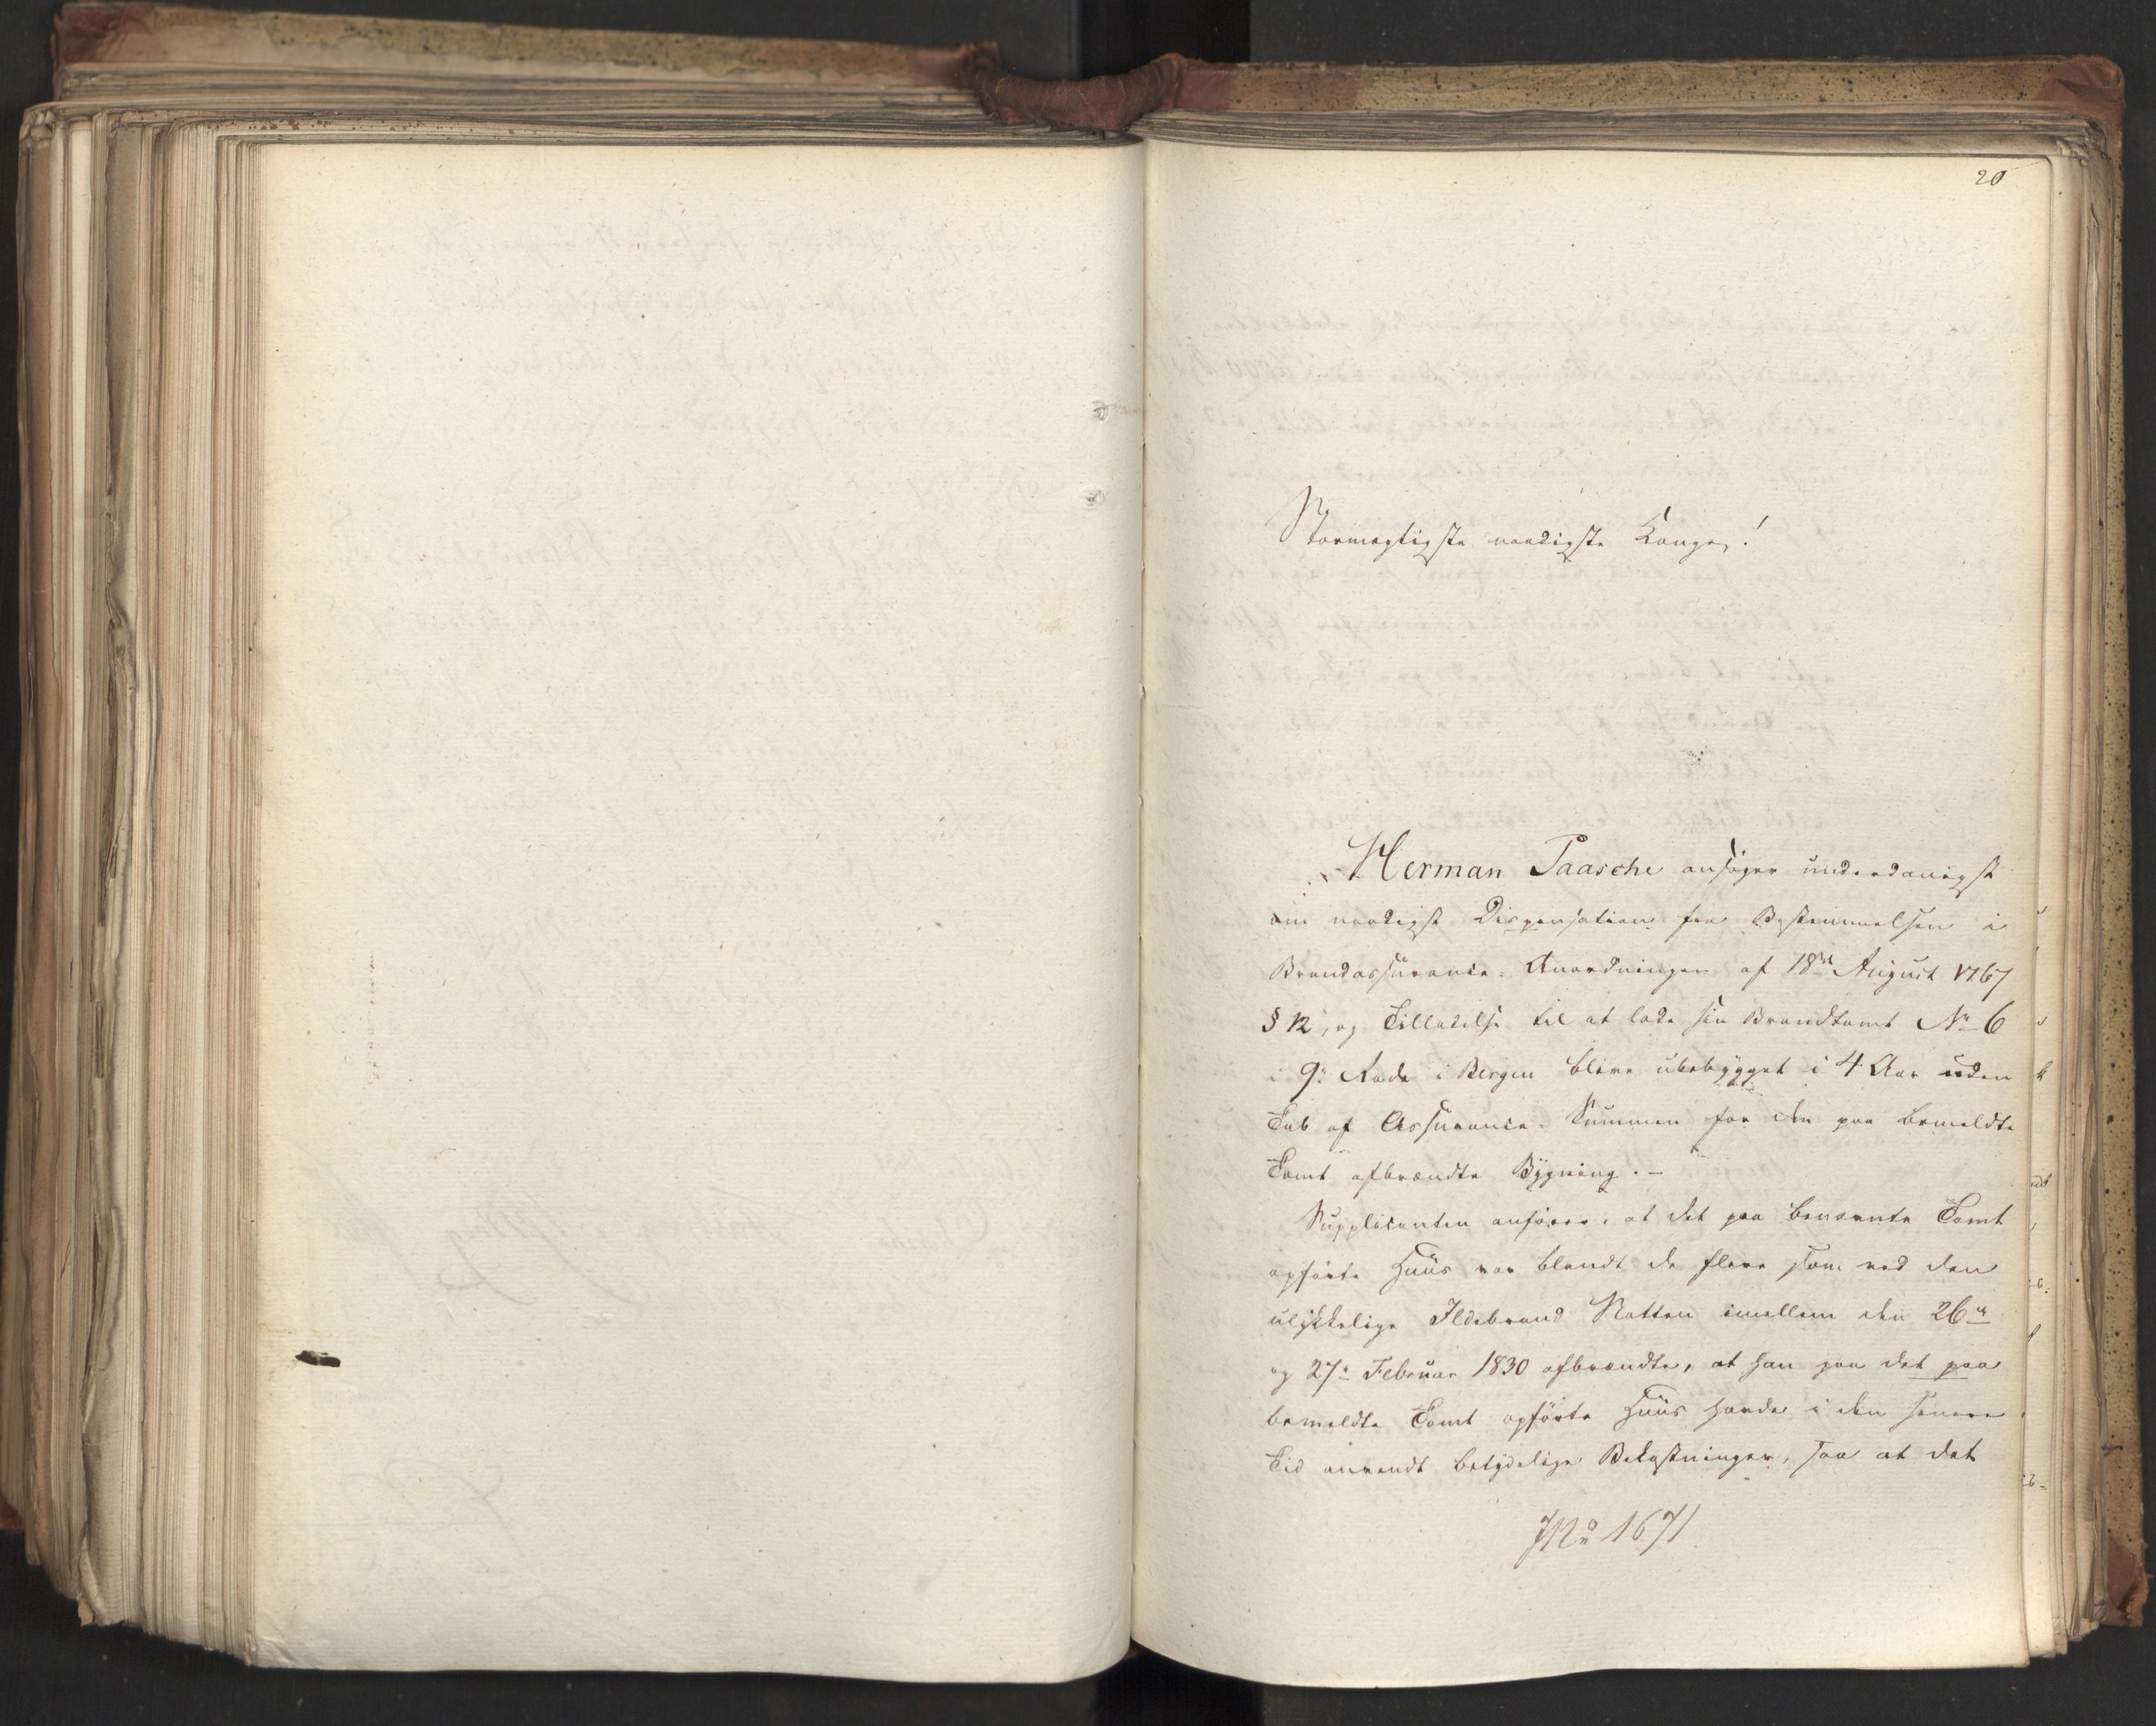 20
Stormægtigste naadigste Konge!
Herman Paasche ansøger underdanigst
om naadigst Dispensation fra Bestemmelsen i
Brandassurance-Anordningen af 18de August 1767
§ 12, og Tilladelse til at lade sin Brandtomt No 6
i 9: Rode i Bergen blive ubebygget i 4 Aar uden
Tab af Assurance-Summen for den paa bemeldte
Tomt afbrændte Bygning.-
Supplicanten anfører, at det paa benævnte Tomt
opførte Huus var blandt de flere som ved den
ulykkelige Ildebrand Natten imellem den 26de
og 27: Februar 1830 afbrændte, at han paa det paa
bemeldte Tomt opførte Huus havde i den senere
Tid anvendt betydelige Bekostninger, saa at det
No 1671